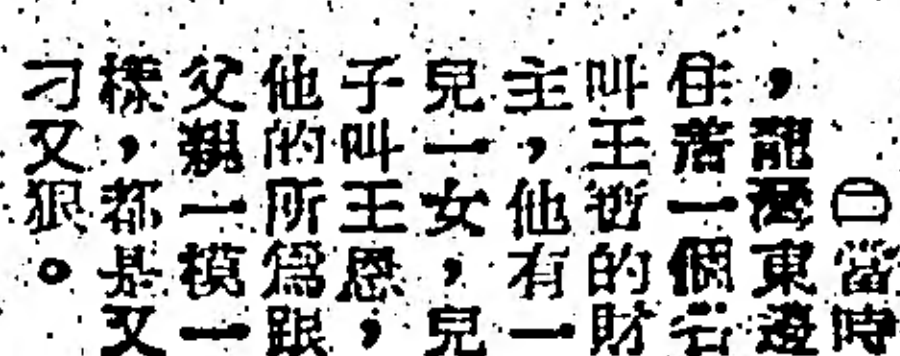 ㊁當時
，龍灣東邊
住着一個名
叫王逝的財
主，他有一
兒一女，兒
子叫王恩，
他的所爲跟
父親一模一
樣，都是又
刁又狠。